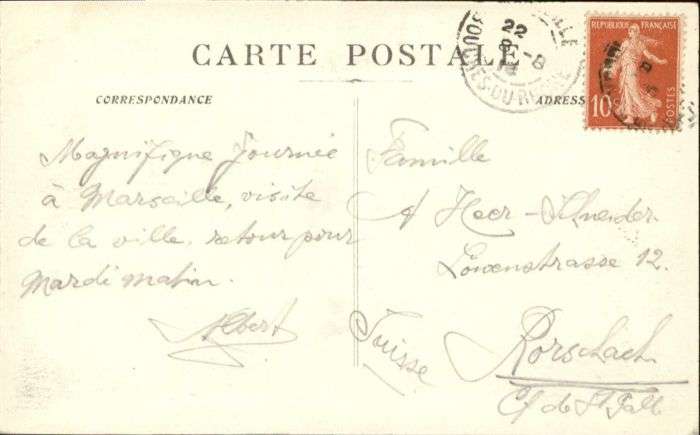 CARTE POSTALE
CORRESPONDANCE
ADRESS
RÉPUBLIQUE FRANÇAISE
10c
POSTES
22
8
14
BOUCHES-DU-RHONE
Magnifique journée
à Marseille, visite
de la ville. retour pour
Mardi matin.
Albert
Famille
A Heer-Schneider
Löwenstrasse 12.
Rorschach
Ct de St Gall
Suisse